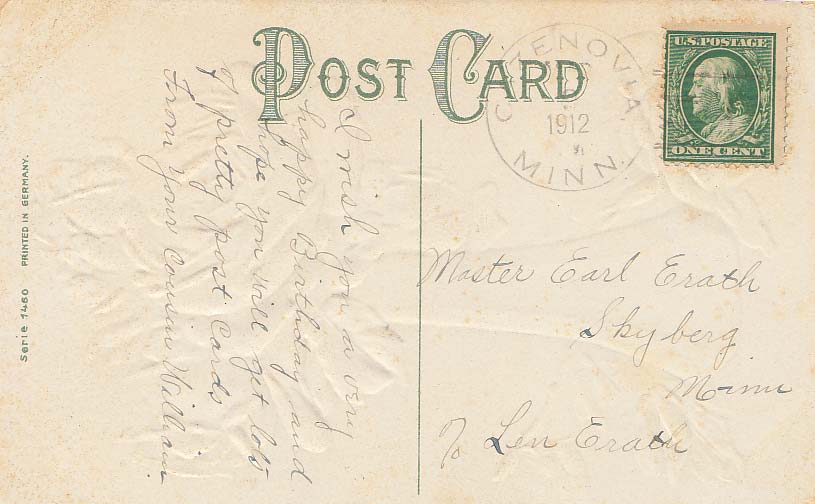 POST CARD
CAZENOVIA,
1912
MINN.
U.S. POSTAGE
ONE CENT
I wish you a very
happy Birthday and
hope you will get lots
of pretty post cards
From your Cousin William.
Master Earl Erath
Skyberg
Minn
℅ Len Erath
Serie 1460 PRINTED IN GERMANY.